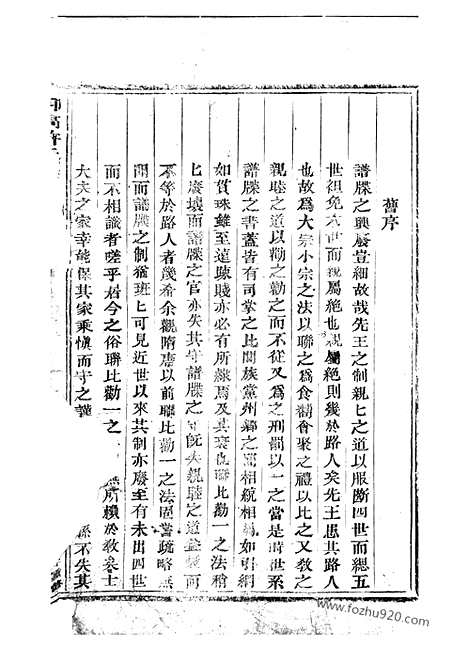 舊序
譜牒之興廢豈細故哉先王之制親亡之道以服斷四世而緦五
世袒免六世而親屬絕也親屬絕則幾於路人矣先王思其路人
也故為大宗小宗之法以聯之為食饗香聚之禮以比之又教之
親睦之道以勸之勸之而不從又為之刑罰以一之當是時世系
譜牒之書蓋皆有司掌之比閭族黨州鄉之  相統相 如引綱
如貫珠雖至遠踈賤亦必有所隸焉及其衰也聯比勸一之法稍
匕廢壞而譜牒之官亦失其守譜牒之 旣失親睦之道 衰而
不等於路人者幾希余觀隋唐以前聯比勸一之法固 疏略
間而譜牒之制猶班匕可見近世以來其制亦廢至有未出四世
而不相識者嗟乎居今之俗聯比勸一之 所賴於教 士
大夫之家幸能保其家乘慎而守之 係不失其
www.fozhu920.com